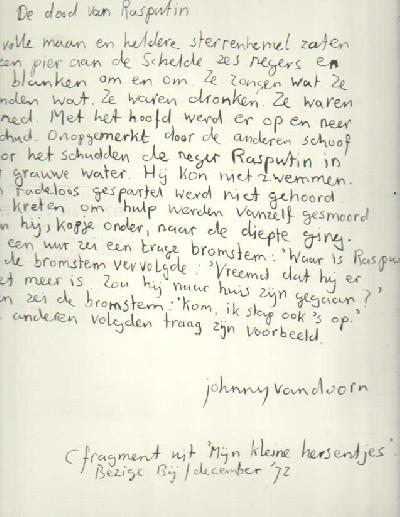 De dood van Rasputin
volle maan en heldere sterrenhemel zaten
een pier aan de Schelde zes negers en
blanken om en om. Ze zongen wat. Ze
nden wat. Ze waren dronken. Ze waren
med. Met het hoofd werd er op en neer
chud. Onopgemerkt door de anderen schoof
or het schudden de neger Rasputin in
grauwe water. Hij kon niet zwemmen.
n radeloos gespartel werd niet gehoord.
kreten om hulp werden vanzelf gesmoord
n hij, kopje onder, naar de diepte ging.
een uur zei een trage bromstem: 'Waar is Raspu
de bromstem vervolgde: 'Vreemd dat hij er
et meer is. Zou hij naar huis zijn gegaan?'
en zei de bromstem: 'Kom, ik stap ook 's op.'
anderen volgden traag zijn voorbeeld.
johnny van doorn
(fragment uit 'Mijn kleine hersentjes'.
Bezige Bij/december '72